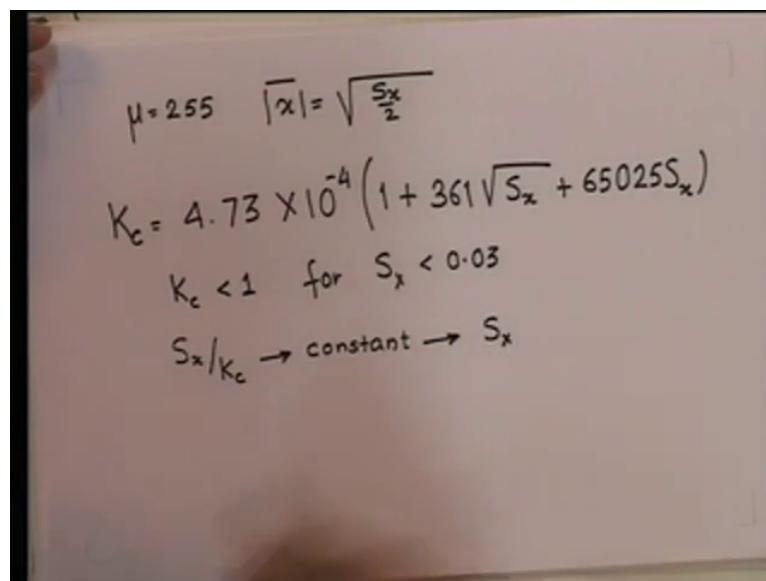 μ = 255 |x̄| = √(Sx/2)
Kc = 4.73 × 10⁻⁴ (1 + 361√Sx + 65025Sx)
Kc < 1 for Sx < 0.03
Sx/Kc → constant → Sx